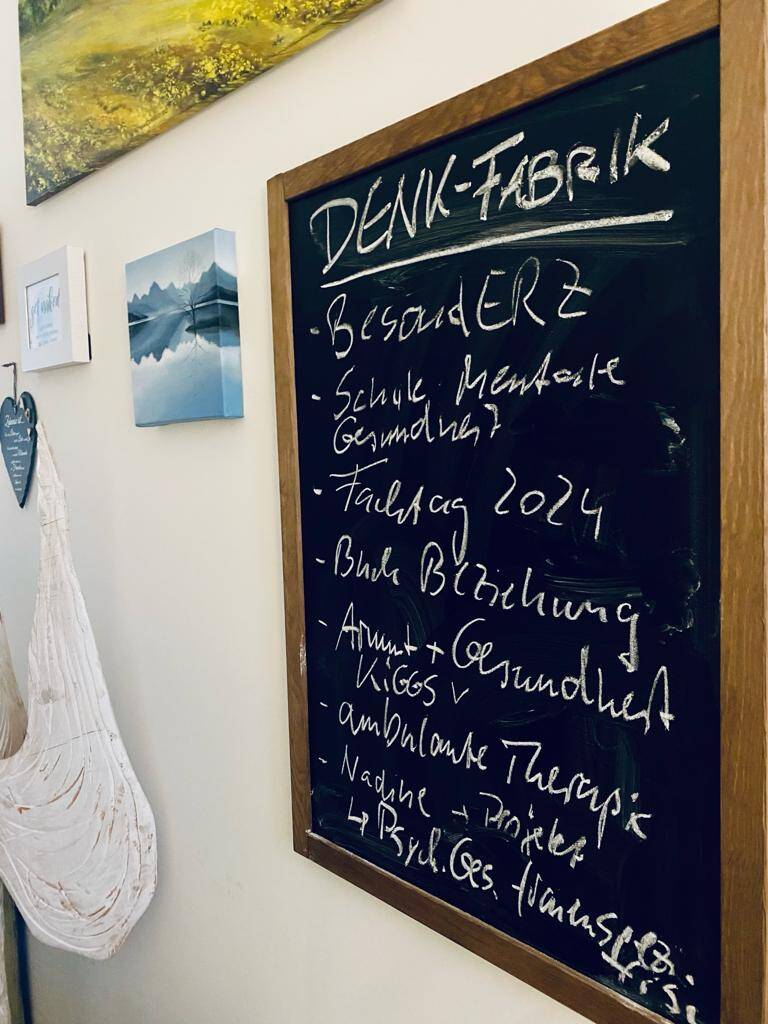 DENK-FABRIK
- BesondERZ
- Schule Mentale
Gesundheit
- Fachtag 2024
- Buch Beziehung
- Armut + Gesundheit
KiGGS ✓
- ambulante Therapie
- Nadine → Projekt
↳ Psych. Ges. frauenspezi-
fisch
get naked